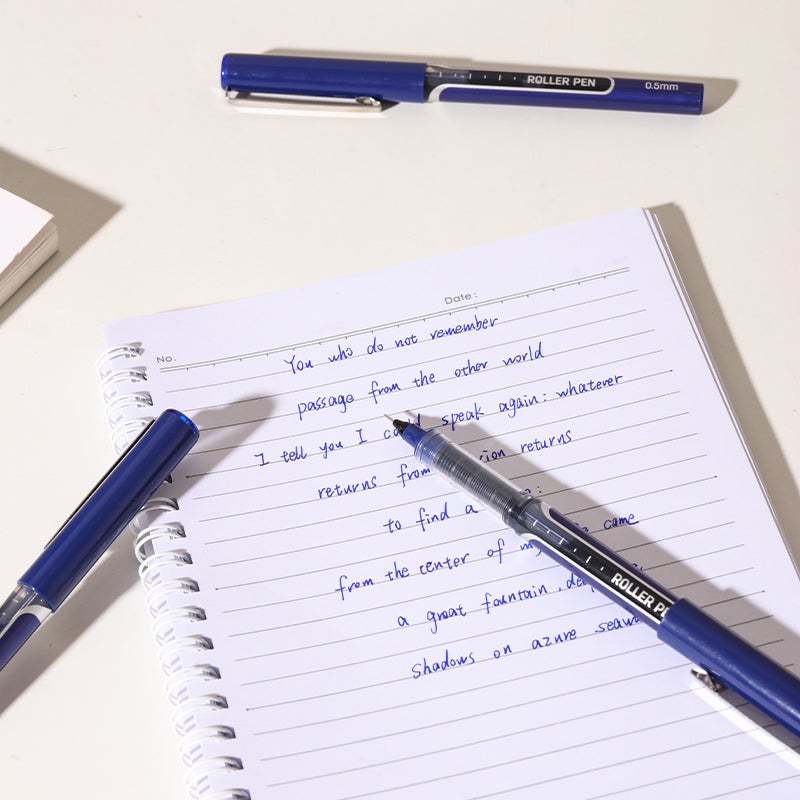 ROLLER PEN 0.5mm
Date:
No.
You who do not remember
passage from the other world
I tell you I speak again: whatever
returns from returns
to find a
from the center of came
a great fountain,
shadows on azure
ROLLER